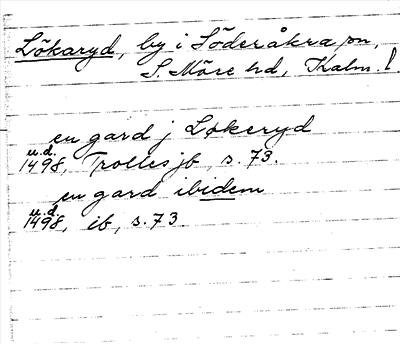 Lökaryd, by i Söderåkra sn,
S. Möre hd, Kalm. l.
en gard j Lokeryd
u.d.
1498, Trolles jb, s. 73.
en gard ibidem
u.d.
1498, ib, s. 73.